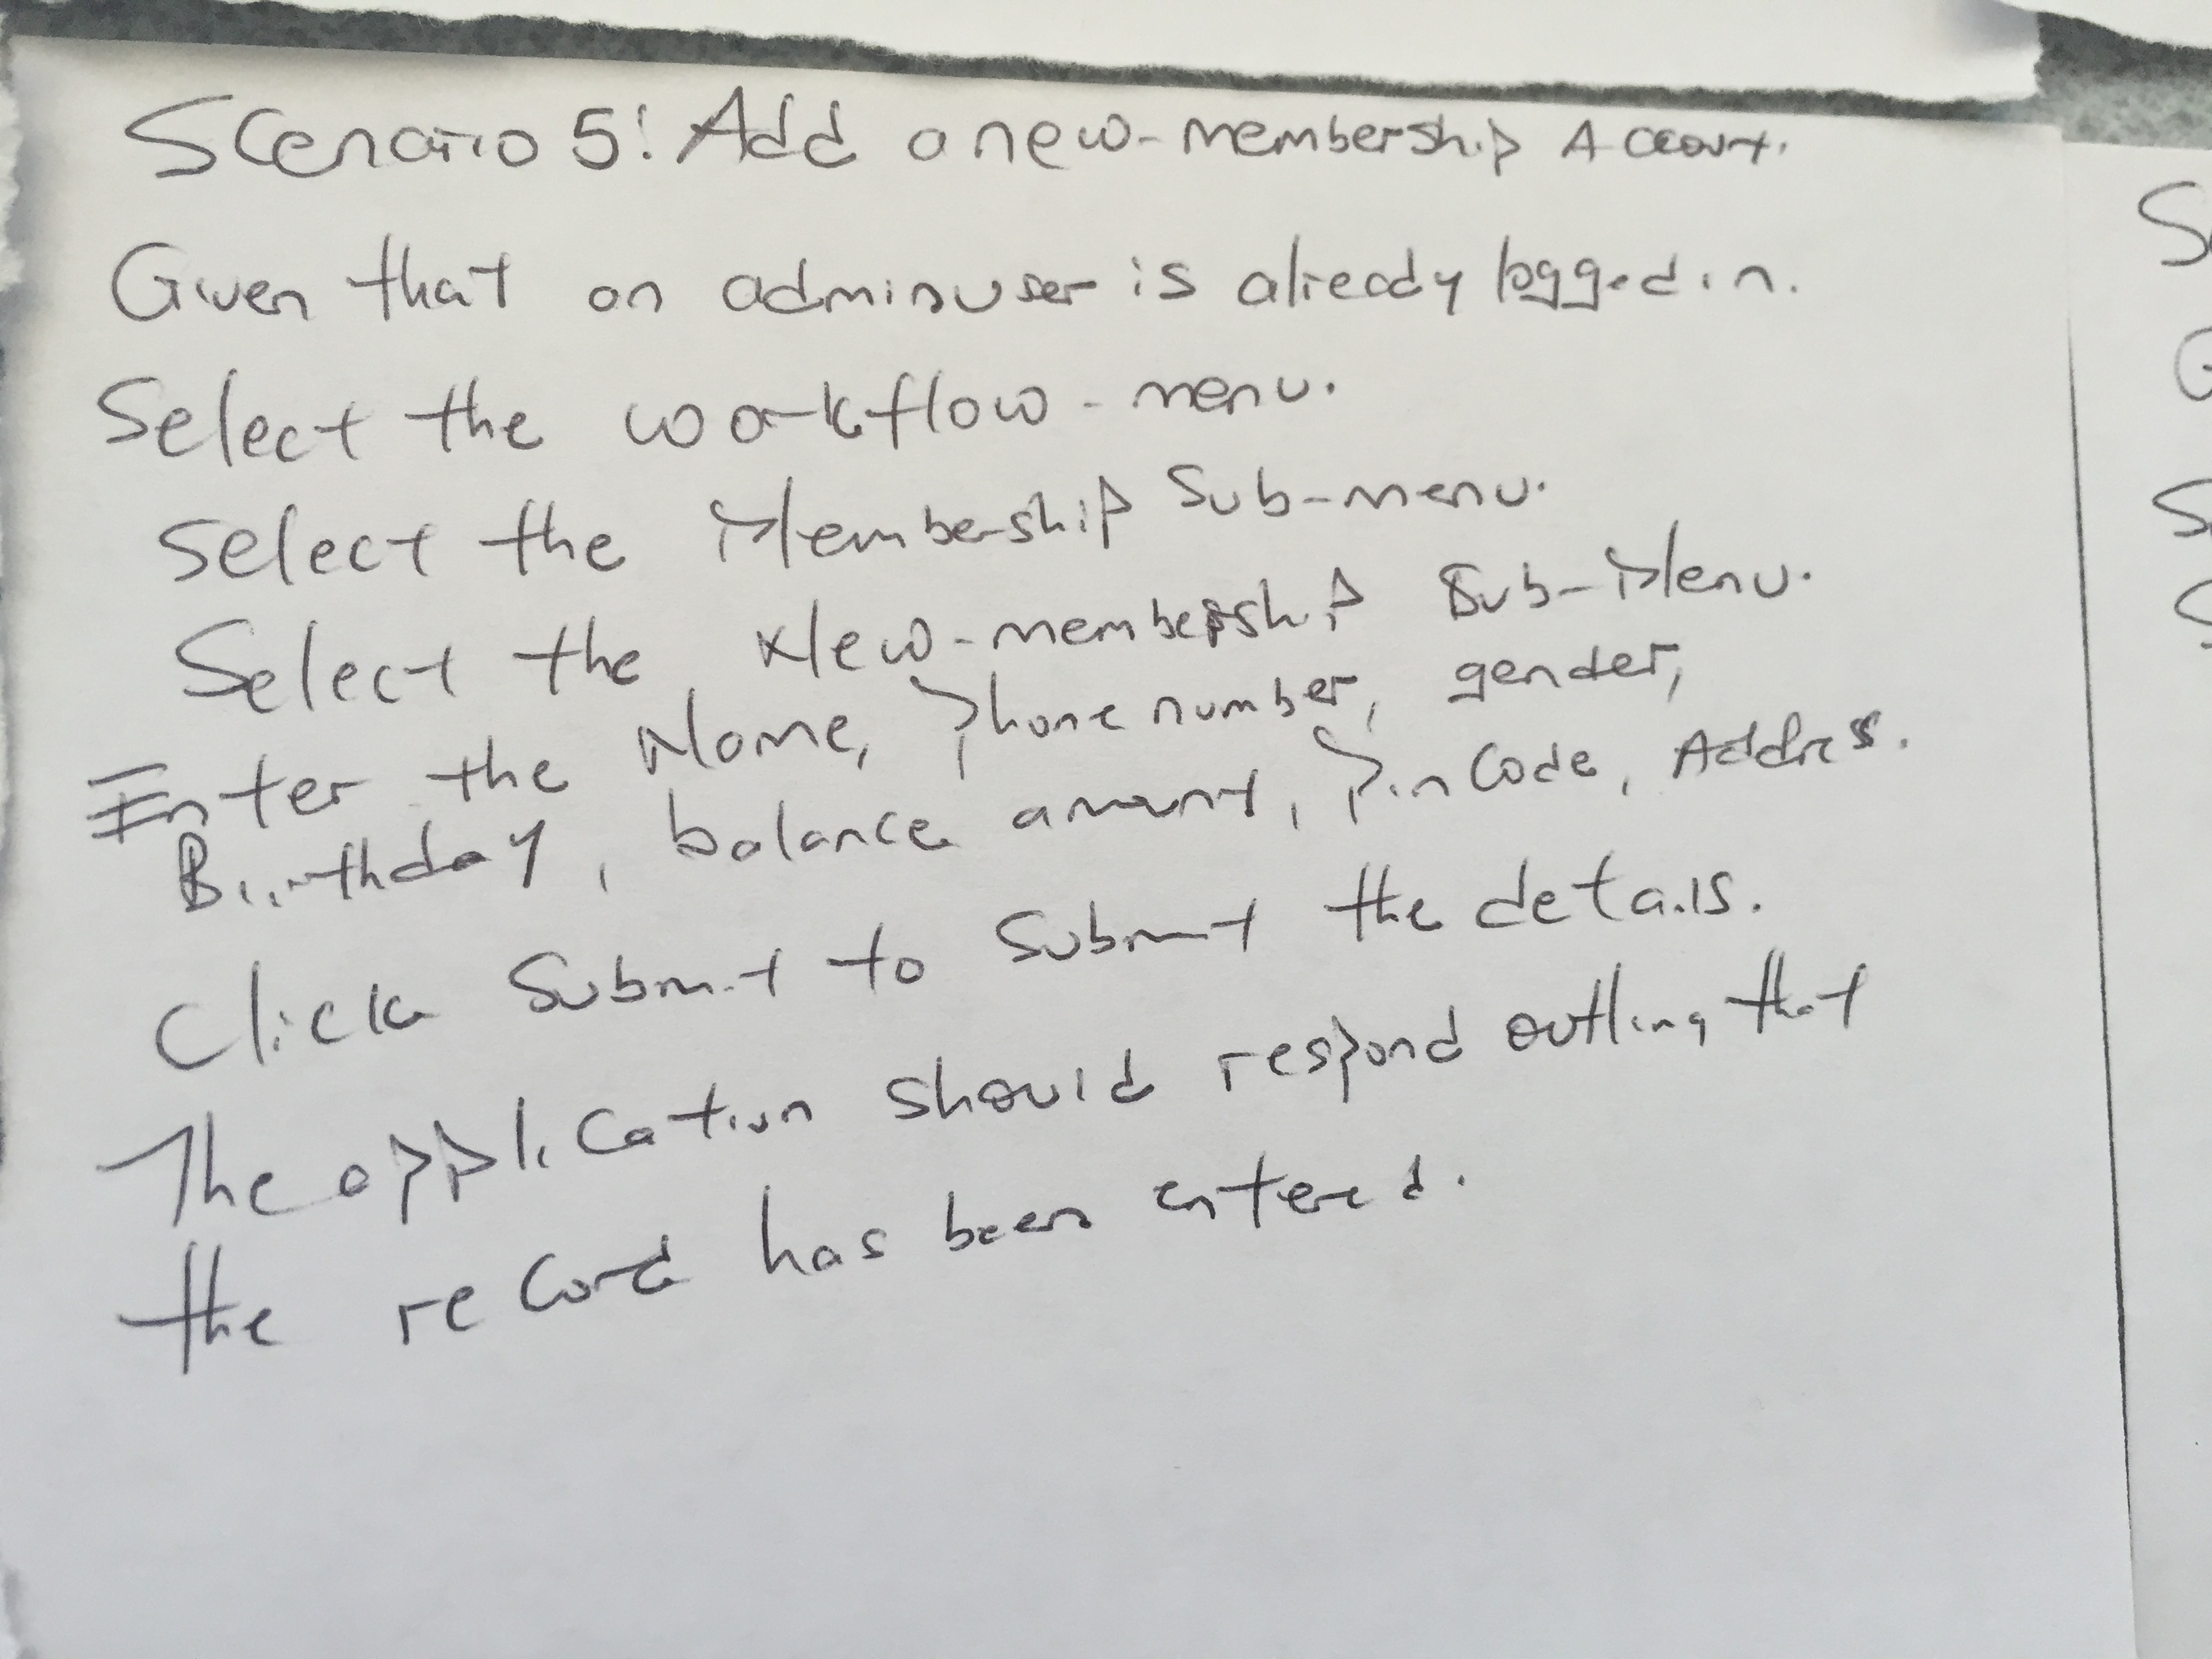 Scenario 5: Add a new-membership Account.
Given that an adminuser is already logged in.
Select the workflow-menu.
Select the Membership Sub-menu.
Select the New-membership Sub-Menu.
Enter the Name, Phone number, gender,
Birthday, balance amount, Pin Code, Address.
Click Submit to Submit the details.
The application should respond outling that
the record has been entered.
S
G
S
S